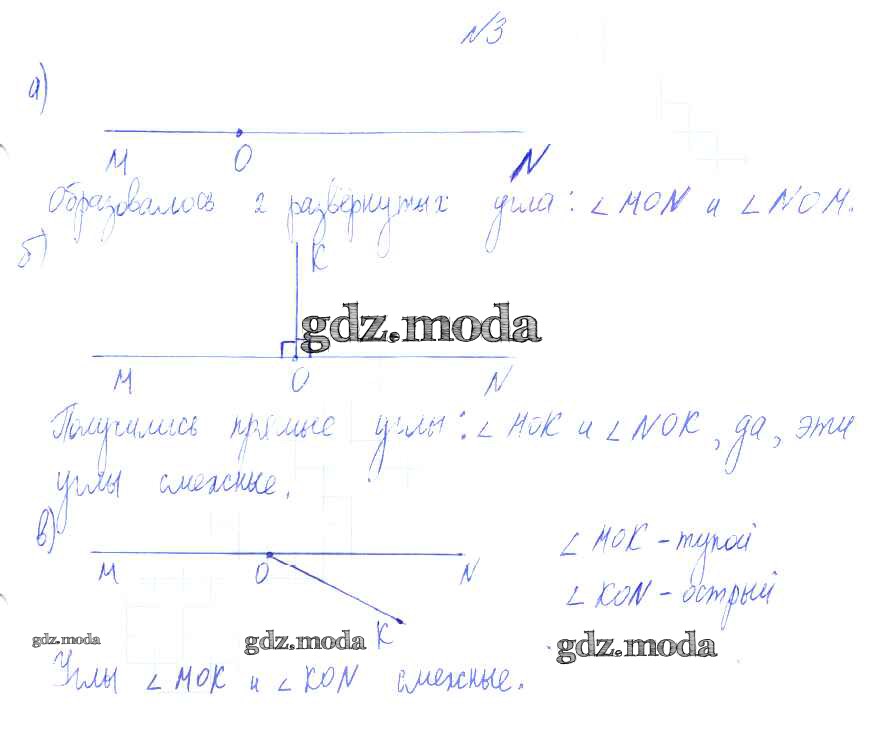 №3
а)
M O N
Образовалось 2 развёрнутых угла: ∠MON и ∠NOM.
б)
K
gdz.moda
M O N
Получились прямые углы: ∠MOK и ∠NOK, да, эти
углы смежные.
в)
∠MOK - тупой
M O N
∠KON - острый
K
gdz.moda gdz.moda gdz.moda
Углы ∠MOK и ∠KON смежные.